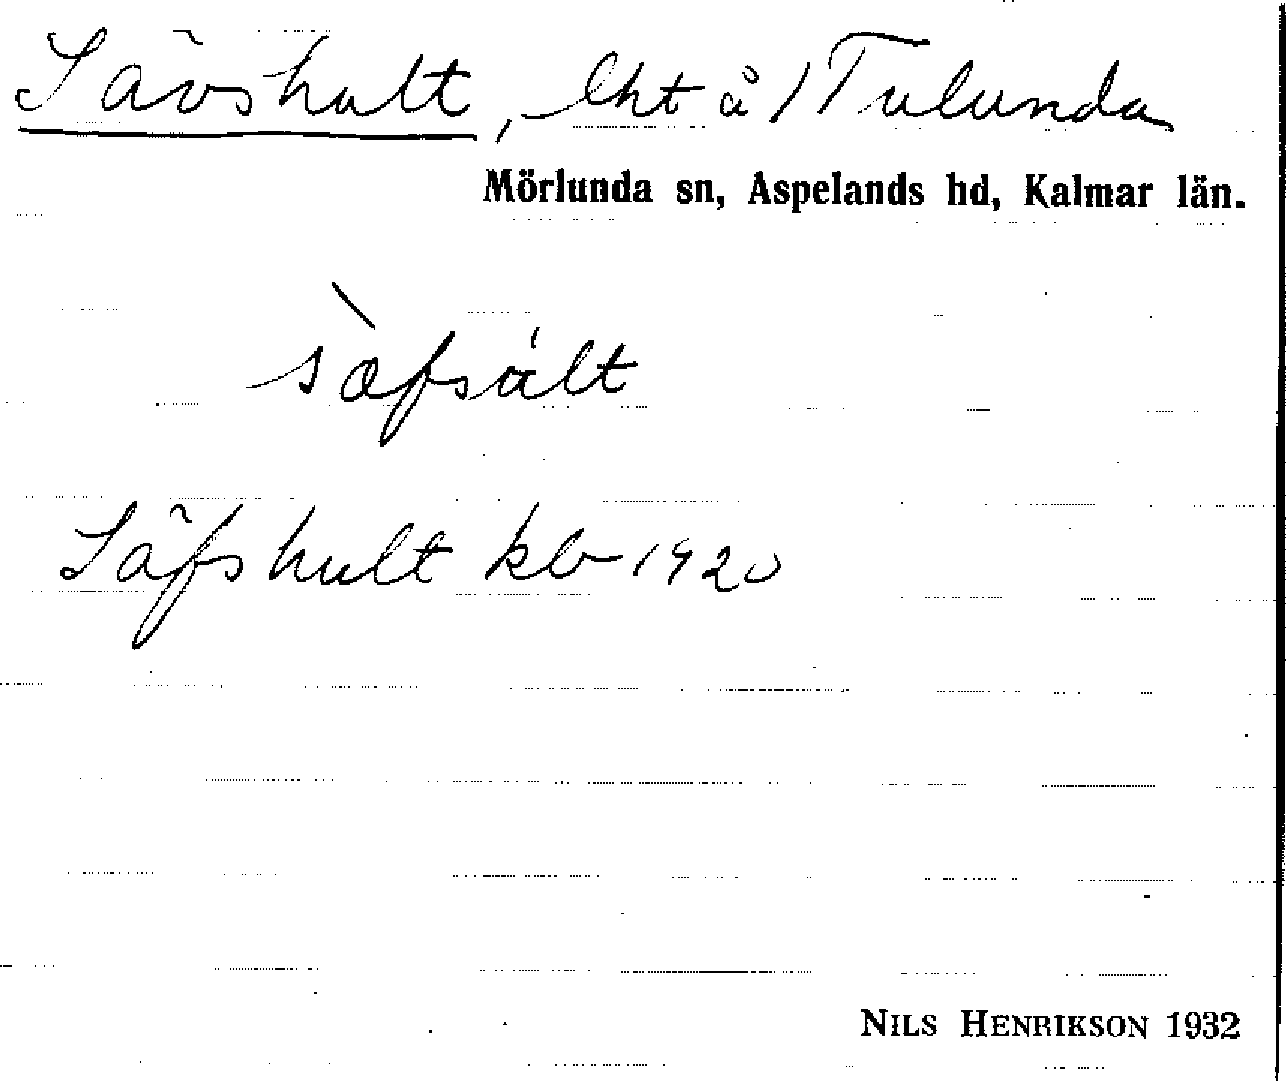 Sävshult, lht å 1 Tulunda
Mörlunda sn, Aspelands hd, Kalmar län.
sæ̀fsúlt
Säfshult kb 1920
NILS HENRIKSON 1932